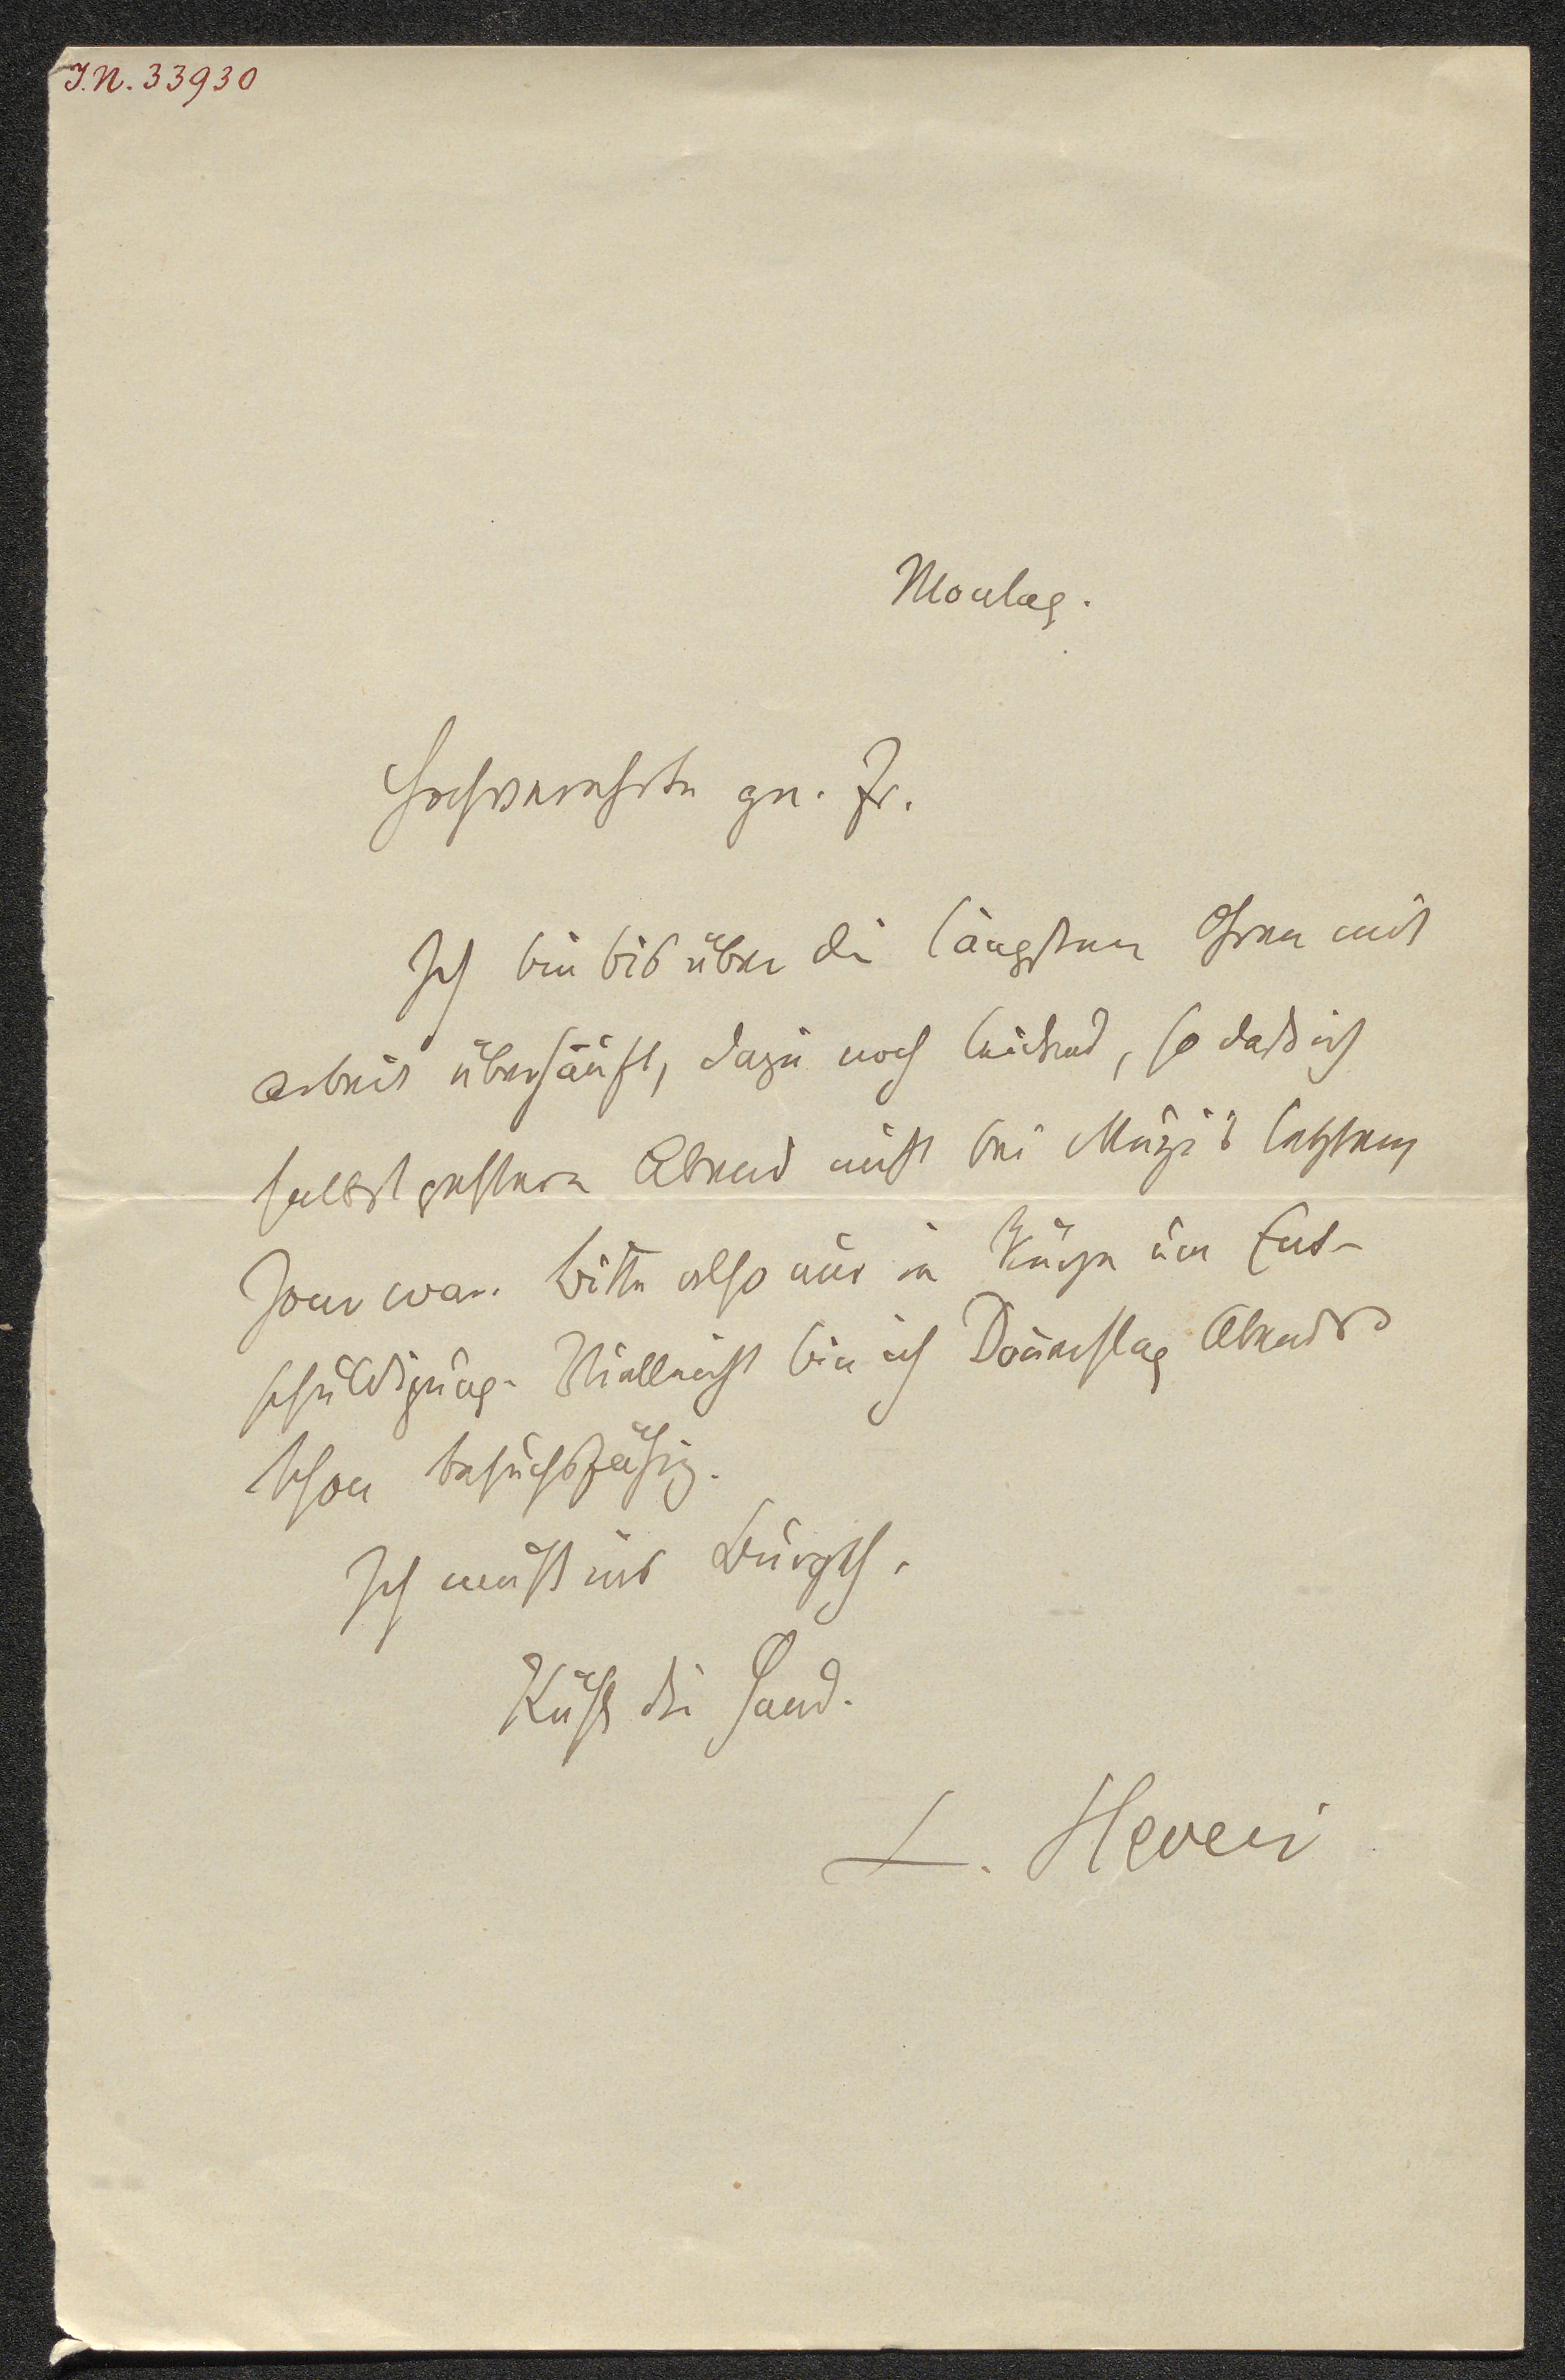 I.N. 33930
Montag.
Hochverehrte gn. Fr.
Ich bin bis über die längsten Ohren mit
Arbeit überhäuft, dazu noch leidend, so daß ich
selbst gestern Abend nicht bei Minzi's letztem
Jour war. Bitte also nur in Kürze um Ent-
schuldigung. Vielleicht bin ich Donnerstag Abends
schon besuchsfähig.
Ich muß ins Burgth.
Küße die Hand.
L. Hevesi